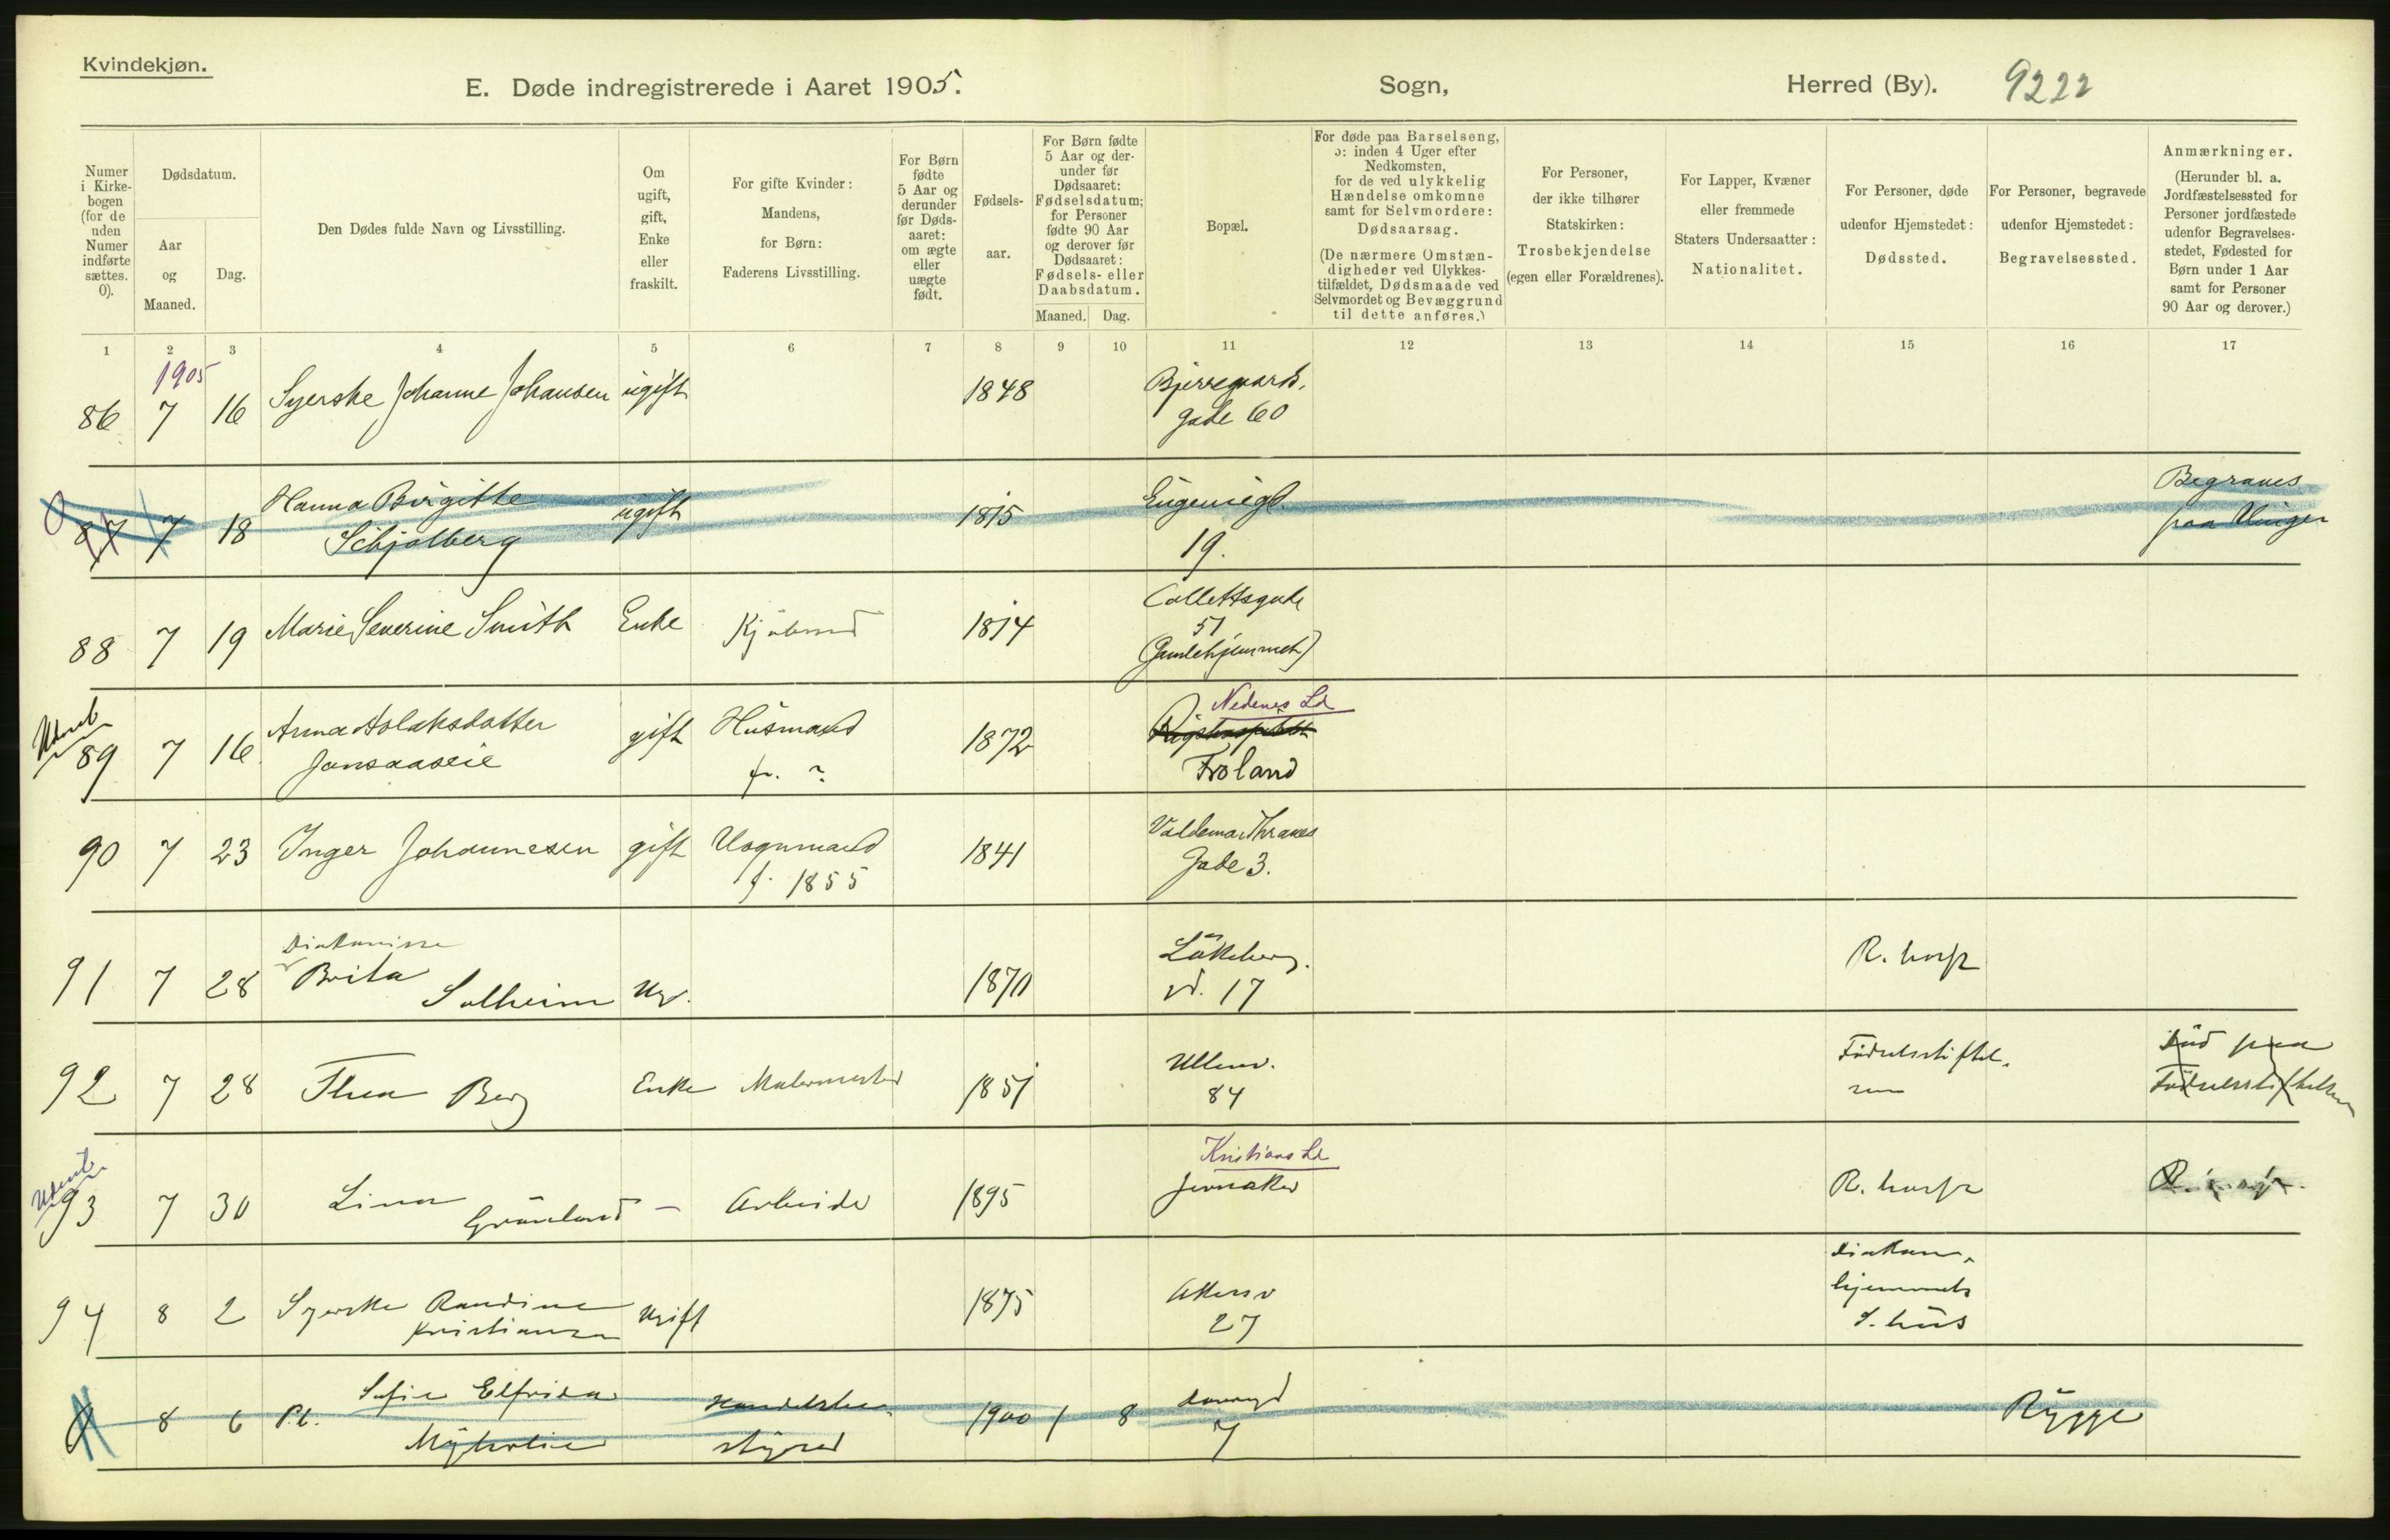 Kvindekjøn.
E. Døde indregistrerede i Aaret 1905. Sogn, Herred (By). 9222
Numer i Kirkebogen (for de uden Numer indførte sættes. 0).
Dødsdatum.
Aar og Maaned.
Dag.
Den Dødes fulde Navn og Livsstilling.
Om ugift, gift, Enke eller fraskilt.
For gifte Kvinder: Mandens, for Børn: Faderens Livsstilling.
For Børn fødte 5 Aar og derunder før Dødsaaret: om ægte eller uægte født.
Fødselsaar.
For Børn fødte 5 Aar og derunder før Dødsaaret: Fødselsdatum; for Personer fødte 90 Aar og derover før Dødsaaret: Fødsels- eller Daabsdatum.
Maaned. Dag.
Bopæl.
For døde paa Barselseng, ɔ: inden 4 Uger efter Nedkomsten, for de ved ulykkelig Hændelse omkomne samt for Selvmordere: Dødsaarsag.
(De nærmere Omstændigheder ved Ulykkestilfældet, Dødsmaade ved Selvmordet og Bevæggrund til dette anføres.)
For Personer, der ikke tilhører Statskirken: Trosbekjendelse (egen eller Forældrenes).
For Lapper, Kvæner eller fremmede Staters Undersaatter: Nationalitet.
For Personer, døde udenfor Hjemstedet: Dødssted.
For Personer, begravede udenfor Hjemstedet: Begravelsessted.
Anmærkninger.
(Herunder bl. a. Jordfæstelsessted for Personer jordfæstede udenfor Begravelsesstedet, Fødested for Børn under 1 Aar samt for Personer 90 Aar og derover.)
1 2 3 4 5 6 7 8 9 10 11 12 13 14 15 16 17
1905
86 7 16 Syerske Johanne Johansen ugift 1848 Bjerregaards.
gade 60
0 87 7 18 Hanna Birgitte ugift 1815 Eugeniegd. Begraves
Schjølberg 19. paa Vinger
88 7 19 Marie Severine Smith Enke Kjøbmd 1814 Collettsgade
51
(Gamlehjemmet)
Udenb. 89 7 16 Anna Aslaksdatter gift Husmand 1872 Nedenes Ld
Jonsaaseie f. ? Rigshospitalet
Froland
90 7 23 Inger Johannesen gift Vognmand 1841 Valdemar Thranes
f. 1855 Gade 3.
91 7 28 Diakonisse
Brita Solheim Ug. 1870 Lökkeberg.
vd. 17 R. hosp
92 7 28 Thea Berg Enke Malermester 1851 Ullev. Födselsstiftel. Död paa
84 sen Födselsstiftelsen
Udenb. 93 7 30 Lina Grönland - Arbeider 1895 Kristians Ld
Jevnaker R. hosp
94 8 2 Syerske Randine Ugift 1875 Akersv Diakon.
Kristiansen 27 hjemmets
S. hus
0 8 6 P.b. Sofie Elfrida Handelsbe. 1900 1 8 7 Rygge
styrer